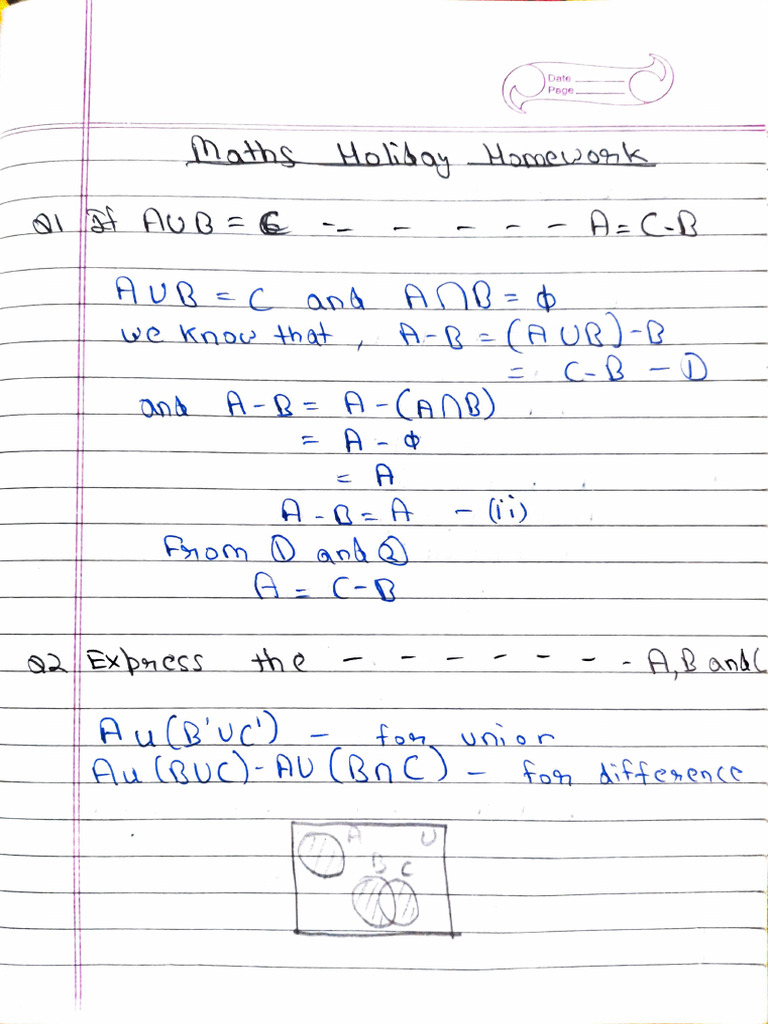 Date
Page
Maths Holiday Homework
Q1 If A∪B = C - - - - - - A = C-B
A∪B = C and A∩B = ϕ
we know that, A-B = (A∪B)-B
= C-B - ①
and A-B = A-(A∩B)
= A - ϕ
= A
A-B = A - (ii)
From ① and ②
A = C-B
Q2 Express the - - - - - - - - A, B and C
A∪(B'∪C') - for union
A∪(B∪C)-A∪(B∩C) - for difference
A U
B C